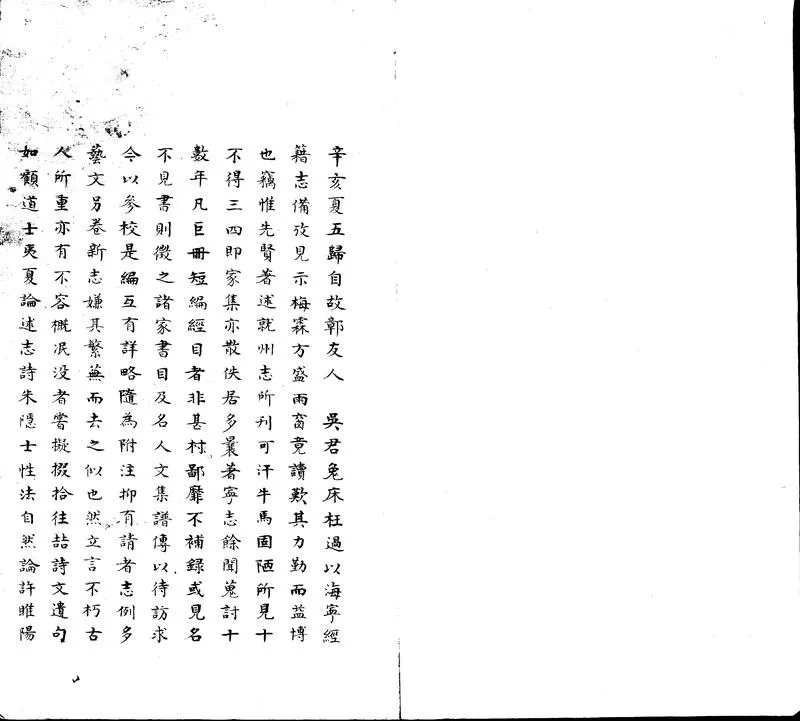 辛亥夏五歸自故鄣友人　吳君兔床枉過以海寧經
籍志備攷見示梅霖方盛雨窗竟讀歎其力勤而益博
也竊惟先賢著述就州志所刋可汗牛馬固陋所見十
不得三四即家集亦散佚居多曩著寧志餘聞蒐討十
數年凡巨冊短編經目者非甚村鄙靡不補錄或見名
不見書則徵之諸家書目及名人文集譜傳以待訪求
今以參校是編互有詳略隨為附注抑有請者志例多
藝文另卷新志嫌其繁蕪而去之似也然立言不朽古
人所重亦有不容概泯没者嘗擬掇拾往喆詩文遺句
如顧道士夷夏論述志詩朱隱士性法自然論許睢陽